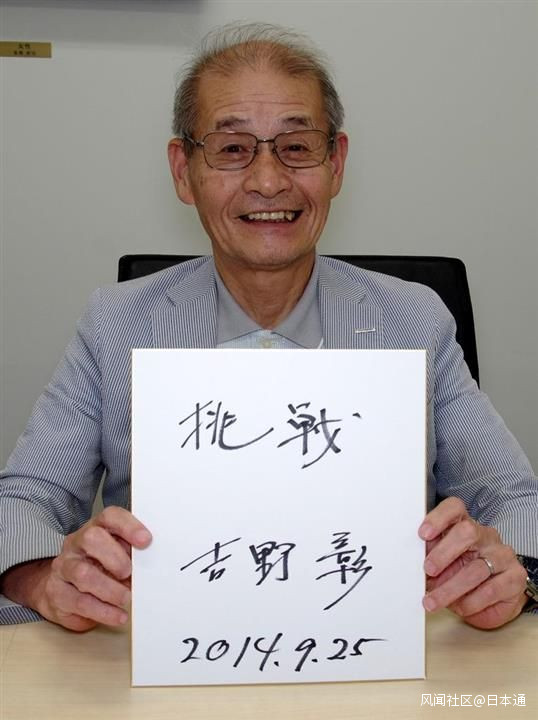 女性
挑戦
吉野彰
2014.9.25
风闻社区@日本通